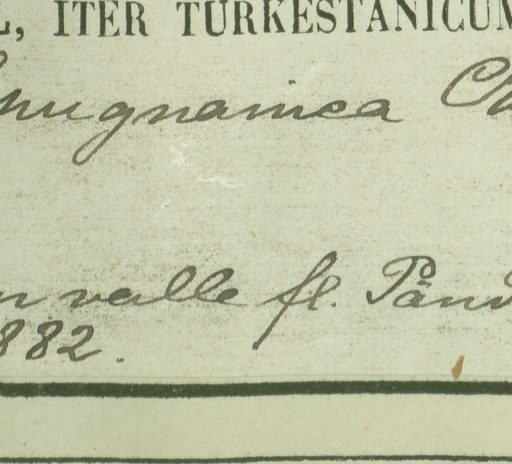 L, ITER TURKESTANICUM
hugnanica Ch
n valle fl. Pänd
1882.